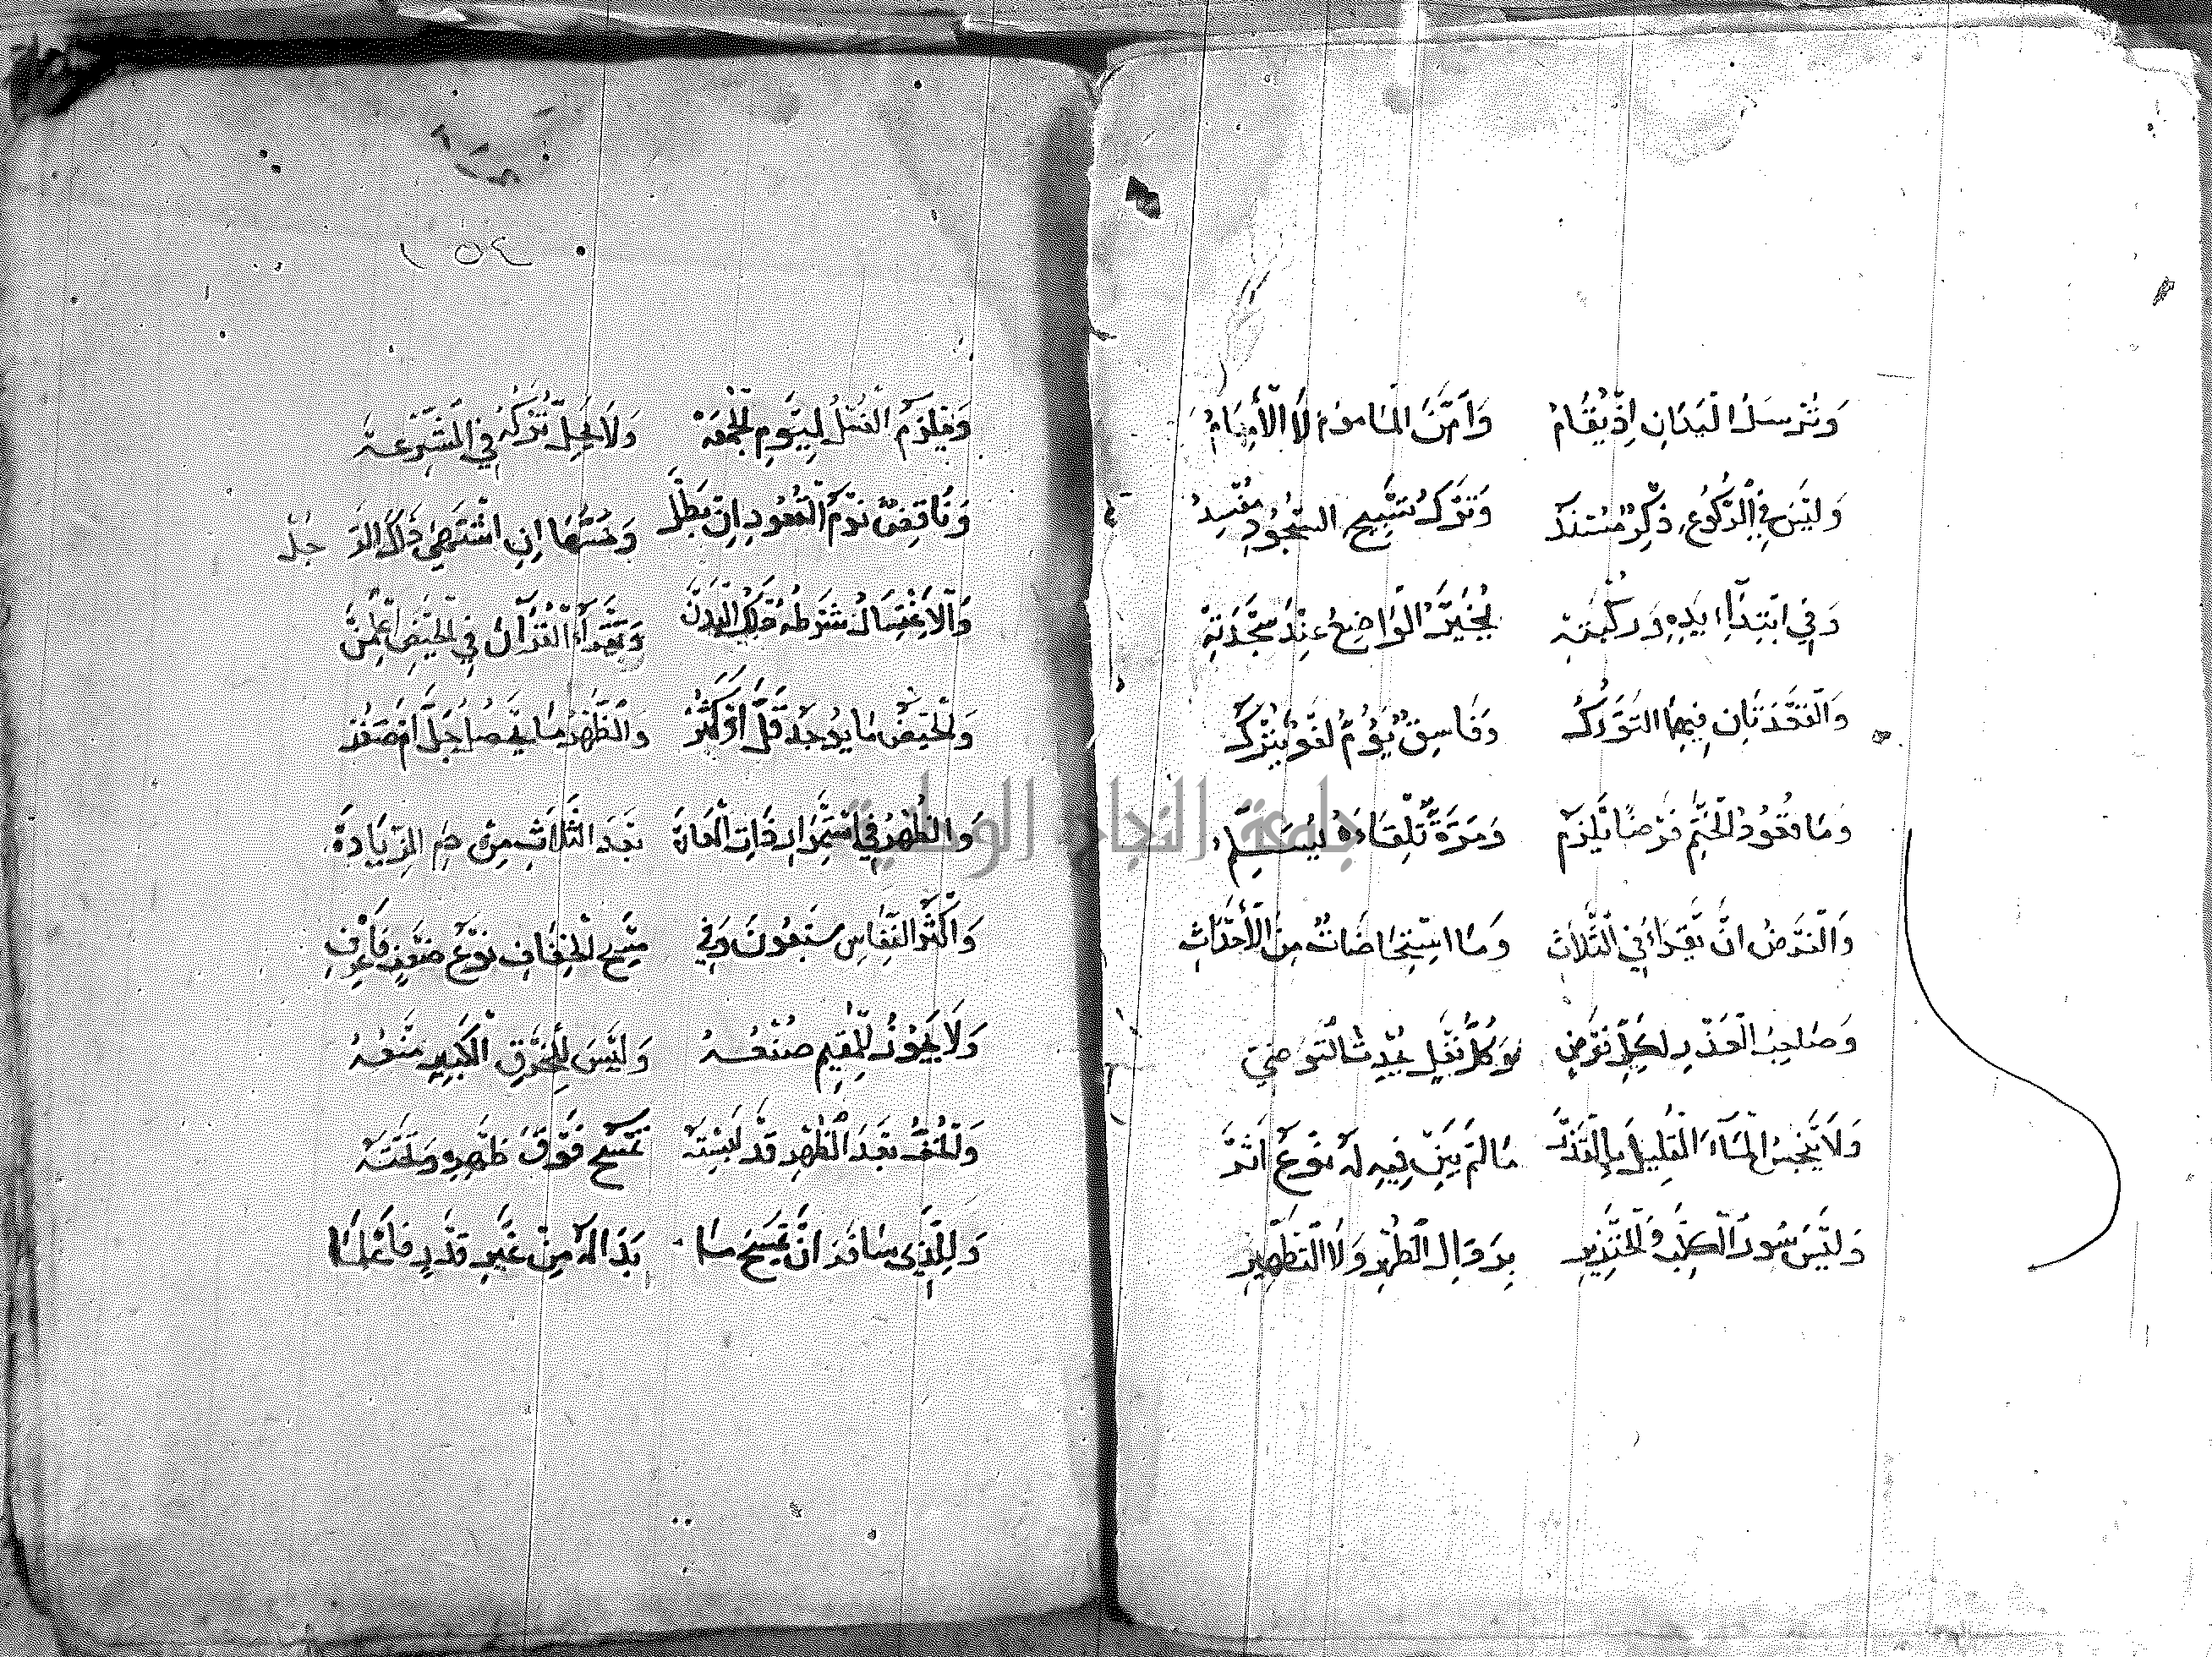 وَتُرْسَلُ الْيَدَانِ اِذْ يُقَامُ وَاَمَّنَ الْمَامُومُ لَا الْاِمَامُ
وَلَيْسَ فِي الرُّكُوعِ ذِكْرٌ مُسْنَدُ وَتَرْكُ تَسْبِيحِ السُّجُودِ مُفْسِدُ
وَفِي ابْتِدَاءِ يَدِهِ وَرُكْبَتِهْ يُخَيَّرُ الْوَاضِعُ عِنْدَ سَجْدَتِهْ
وَالْقَعْدَتَانِ فِيهِمَا التَّوَرُّكُ وَفَاسِقٌ يَؤُمُّ لَغْوٌ يُتْرَكُ
وَمَا قُعُودُ الْخَتْمِ فَرْضًا يَلْزَمُ وَمَرَّةً تِلْقَاءَهُ يُسَلِّمُ
وَالْفَرْضُ اَنْ يَقْرَاَ فِي الثَّلَاثِ وَمَا اسْتِحَاضَاتٌ مِنَ الْاَحْدَاثِ
وَصَاحِبُ الْعُذْرِ لِكُلِّ فَرْضِ وَكُلِّ نَفْلٍ يُحْدِثُ التَّوَضِّي
وَلَا يُنَجِّسُ الْمَاءَ الْقَلِيلَ بِالْقَذَرْ مَا لَمْ يَبِنْ فِيهِ لَهُ نَوْعُ اَثَرْ
وَلَيْسَ سُورُ الْكَلْبِ وَالْخِنْزِيرِ بِزَوَالِ الطُّهْرِ وَلَا التَّطْهِيرِ
١٥٤
وَيَلْزَمُ الْغُسْلُ لِيَوْمِ الْجُمُعَهْ وَلَا يَحِلُّ تَرْكُهُ فِي الشِّرْعَهْ
وَنَاقِضٌ نَوْمُ الْقُعُودِ اِنْ يَطُلْ وَمَسُّهَا اِنِ اشْتَهَى ذَاكَ الرَّجُلْ
وَالْاِغْتِسَالُ شَرْطُهُ دَلْكُ الْبَدَنْ وَتَقْرَاُ الْقُرْآنَ فِي الْحَيْضِ اعْلَمَنْ
وَالْحَيْضُ مَا يُوجَدُ قَلَّ اَوْ كَثُرْ وَالطُّهْرُ مَا فِي فَصْلِ جَلَّ اَمْ صَغُرْ
وَالطُّهْرُ فِي اسْتِمْرَارِ ذَاتِ الْعَادَهْ بَعْدَ الثَّلَاثِ مِنْ دَمِ الزِّيَادَهْ
وَاَكْثَرُ النِّفَاسِ سَبْعُونَ وَفِي مَسْحِ الْخِفَافِ نَوْعُ ضَعْفٍ فَاعْرِفِ
وَلَا يَجُوزُ لِلْمُقِيمِ صُنْعُهُ وَلَيْسَ لِلْخَرْقِ الْكَبِيرِ مَنْعُهُ
وَالْخُفُّ بَعْدَ الطُّهْرِ قَدْ لَبِسْتَهْ تَمْسَحُ فَوْقَ ظَهْرِهِ وَتَحْتَهْ
وَلِلَّذِي سَافَرَ اَنْ يَمْسَحَ مَا بَدَا لَهُ مِنْ غَيْرِ قَدْرٍ فَاعْلَمَا
جامعة النجاح الوطنية